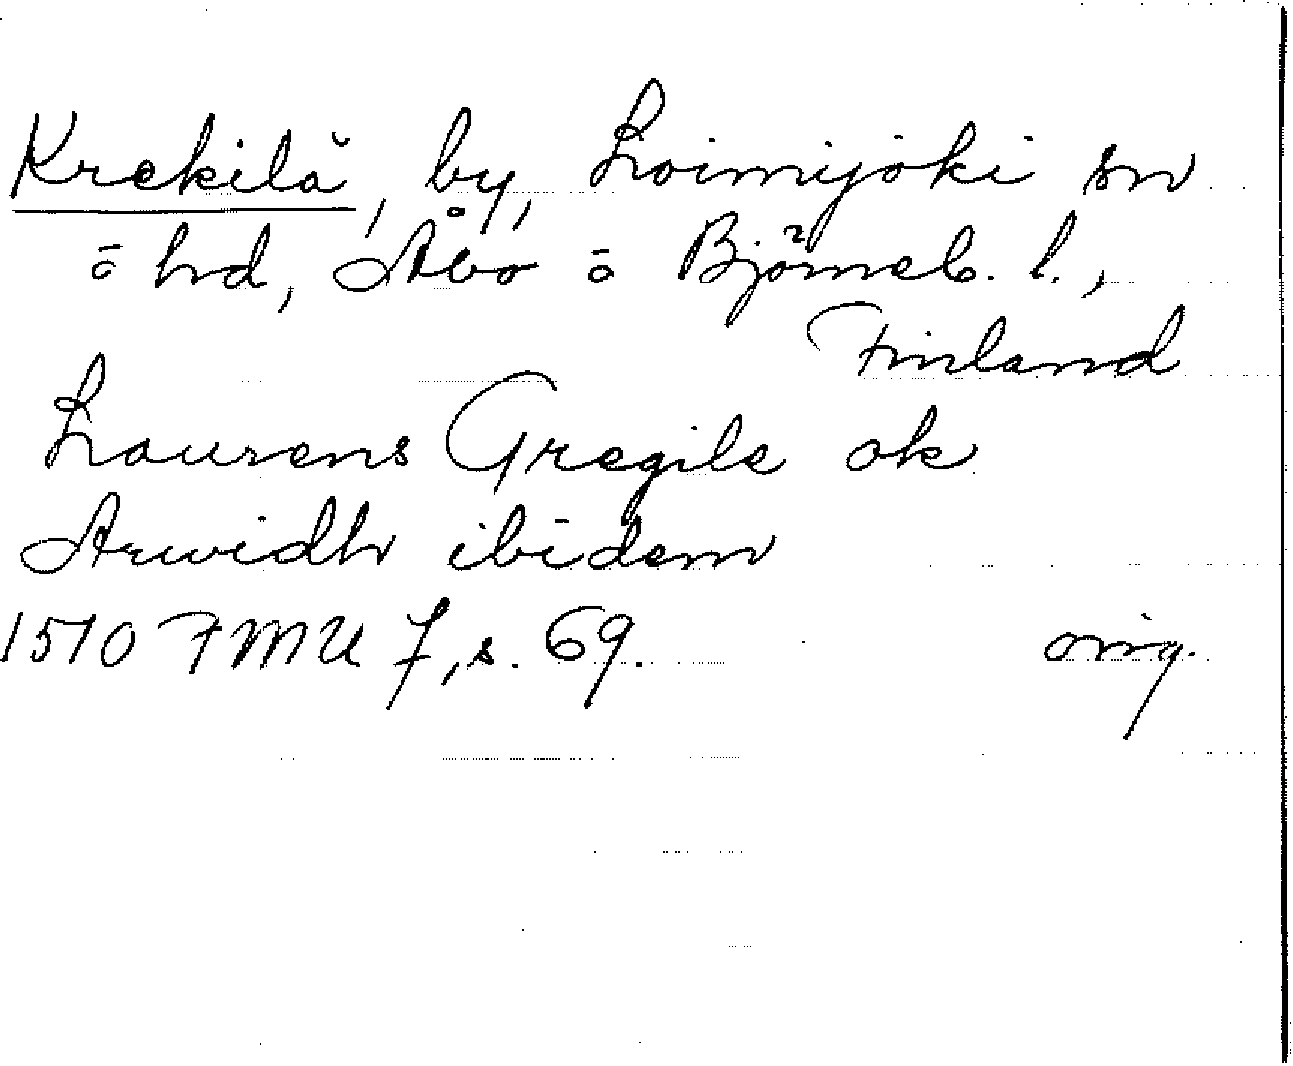 Krekilä, by, Loimijoki sn
o hd, Åbo o Björneb. l.,
Finland
Laurens Gregile ok
Arwidh ibidem
1510 FMU 7, s. 69. orig.